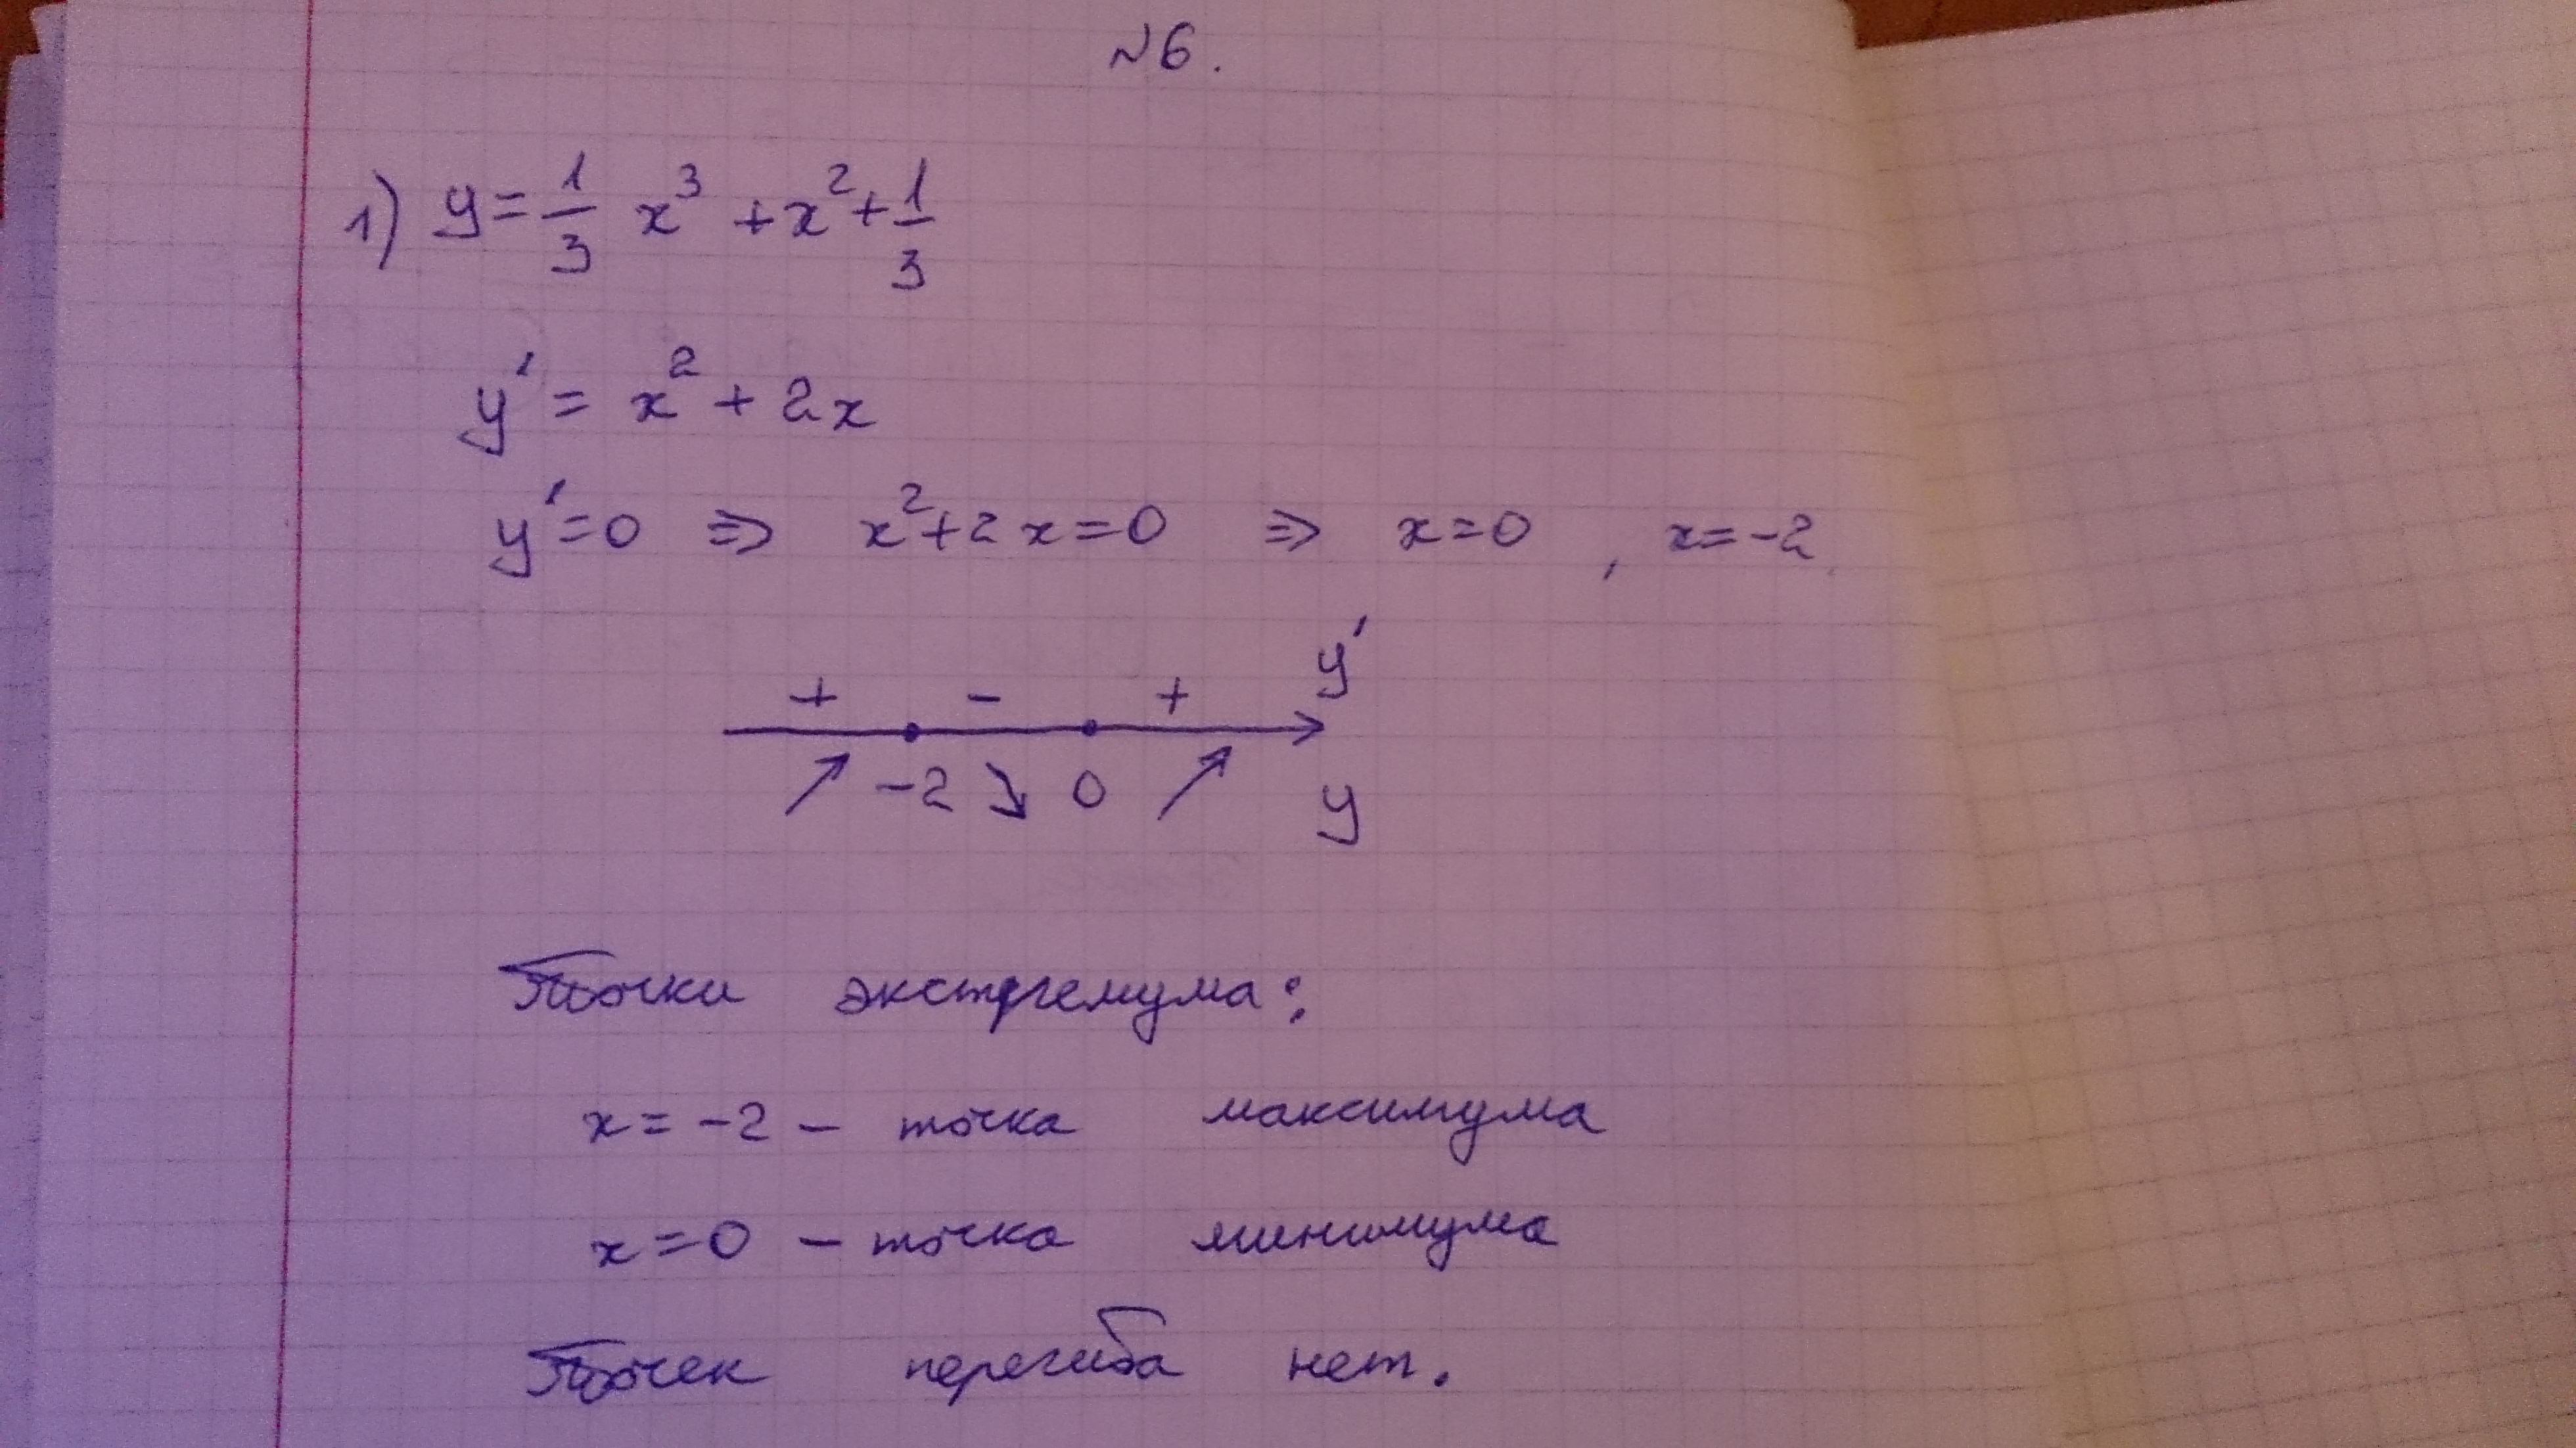 №6.
1) y = 1/3 x³ + x² + 1/3
y' = x² + 2x
y' = 0 ⇒ x² + 2x = 0 ⇒ x = 0 , x = -2
y'
+ - +
↗ -2 ↘ 0 ↗ y
Точки экстремума:
x = -2 – точка максимума
x = 0 – точка минимума
Точек перегиба нет.